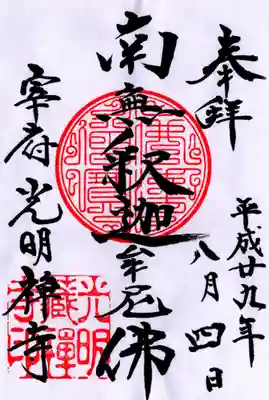 奉拝
平成廿九年
八月四日
南無釈迦牟尼佛
宰府光明禅寺